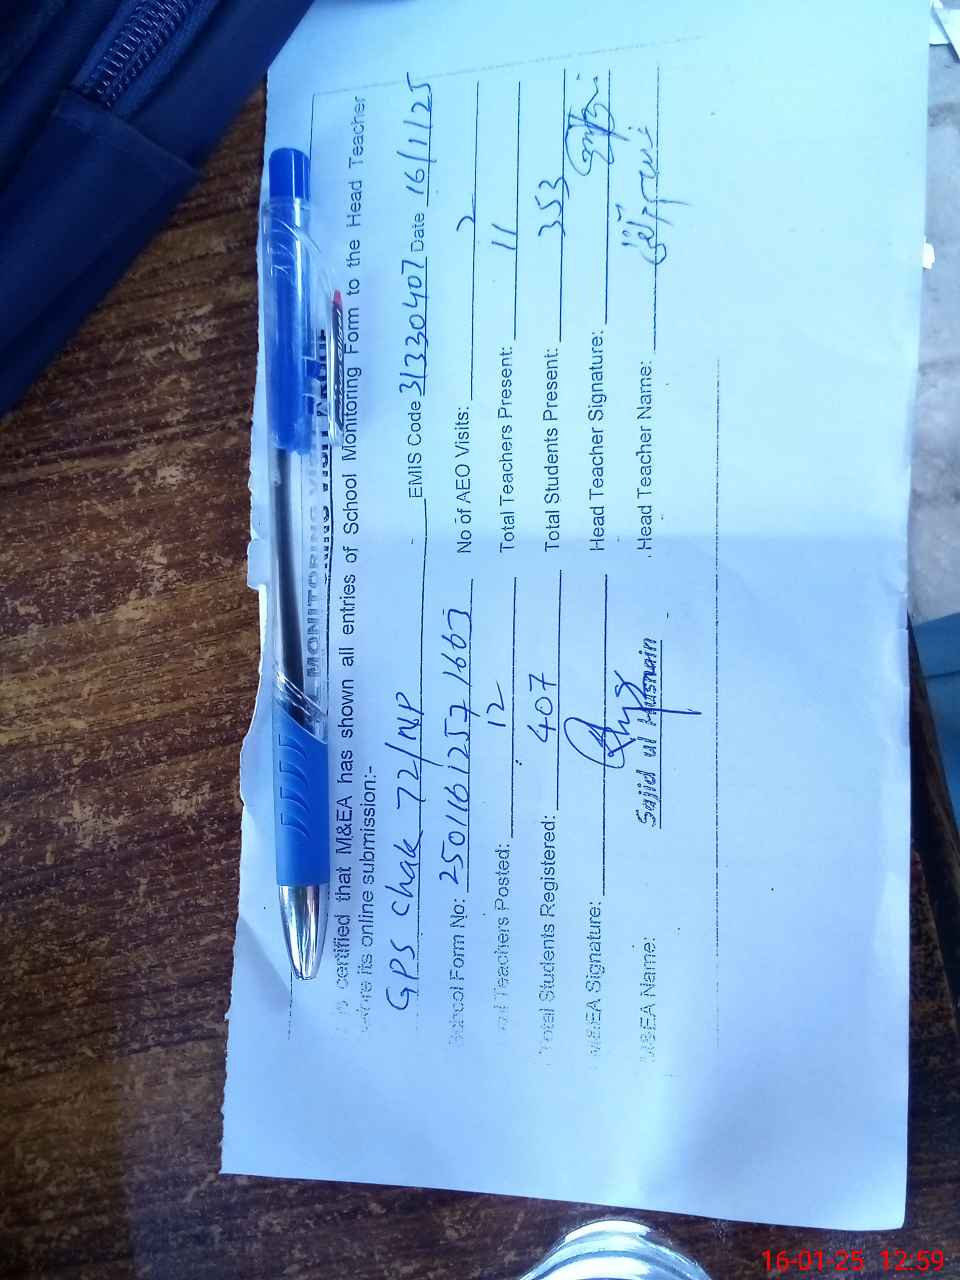 MONITORING VISIT PROOF
certified that M&EA has shown all entries of School Monitoring Form to the Head Teacher
before its online submission:-
GPS Chak 72/NP EMIS Code 31330407 Date 16/1/25
School Form No: 250116125721663 No of AEO Visits: 2
Total Teachers Posted: 12 Total Teachers Present: 11
Total Students Registered: 407 Total Students Present: 353
M&EA Signature: Head Teacher Signature:
M&EA Name: Sajid ul Husnain Head Teacher Name:
16-01-25 12:59